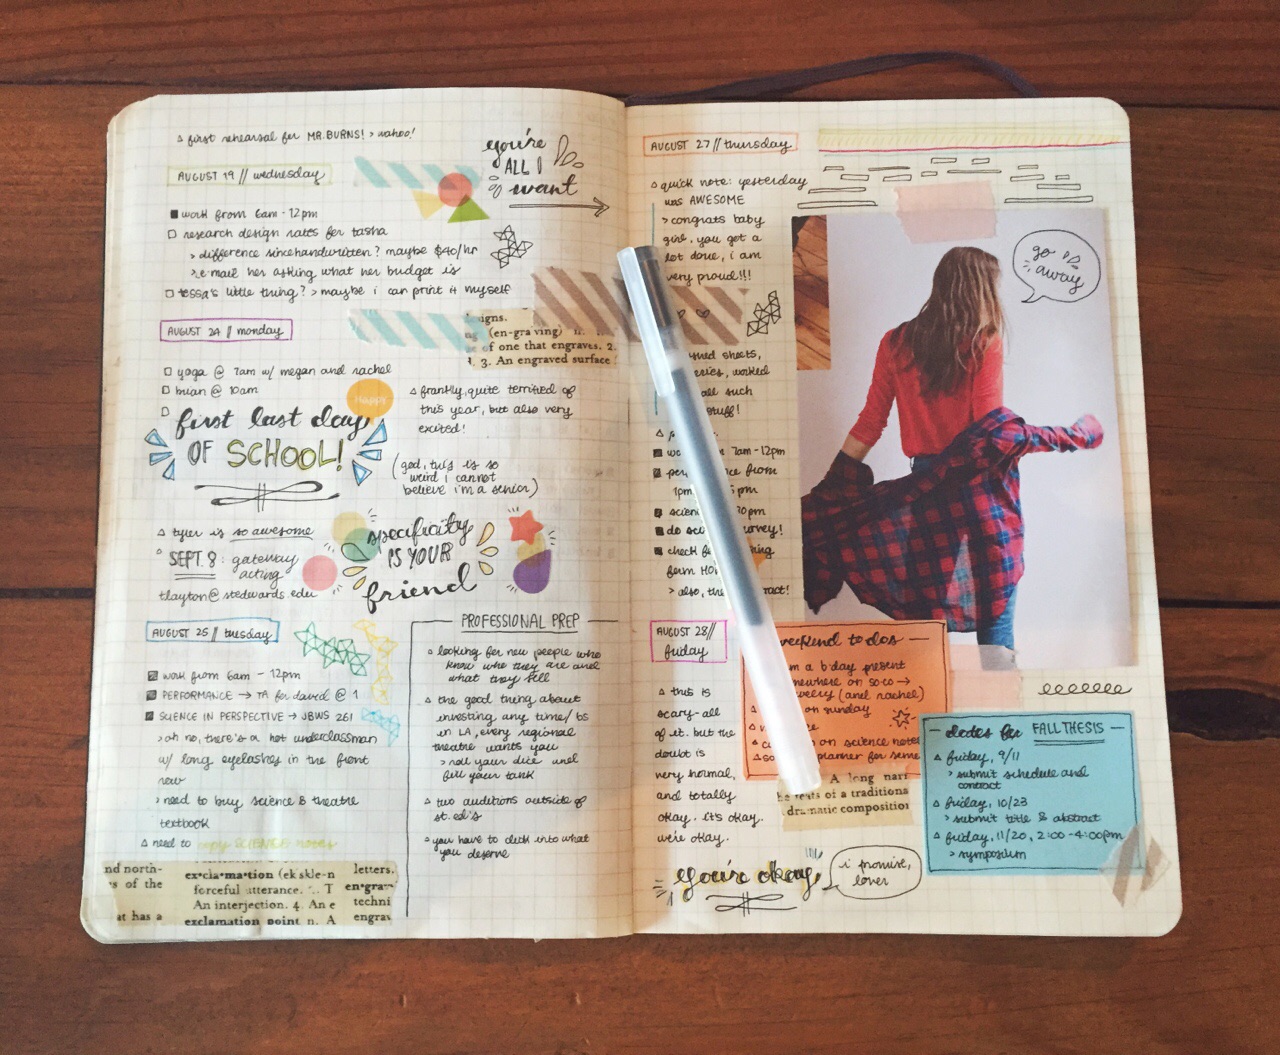 △ first rehearsal for MR. BURNS! > wahoo!
you're
ALL I
want
AUGUST 19 // wednesday
work from 6am - 12pm
research design rates for tasha
> difference since handwritten? maybe $40/hr
> e-mail her asking what her budget is
tessa's little thing? > maybe i can print it myself
AUGUST 24 // monday
signs.
(en-gra'ving) n.
of one that engraves. 2.
3. An engraved surface
yoga @ 7am w/ megan and rachel
brian @ 10am
first last day
OF SCHOOL!
Happy
△ frankly, quite terrified of
this year, but also very
excited!
(god, this is so
weird i cannot
believe i'm a senior)
△ tyler is so awesome
SEPT. 8: gateway
acting
tlayton@stedwards.edu
specificity
IS YOUR
friend
AUGUST 25 // tuesday
work from 6am - 12pm
PERFORMANCE → TA for david @ 1
SCIENCE IN PERSPECTIVE → JBWS 261
> oh no, there's a hot underclassman
w/ long eyelashes in the front
row
> need to buy science & theatre
textbook
△ need to copy SCIENCE notes
nd north-
s of the
at has a
ex·cla·ma·tion (ek skle-n
forceful utterance. T
An interjection. 4. An e
exclamation point n. A
letters.
en·grav
techni
engrav
PROFESSIONAL PREP
△ looking for new people who
know who they are and
what they sell
△ the good thing about
investing any time/bs
in LA, every regional
theatre wants you
> roll your dice and
fill your tank
△ two auditions outside of
st. ed's
△ you have to click into what
you deserve
AUGUST 27 // thursday
△ quick note: yesterday
was AWESOME
> congrats baby
girl. you got a
lot done, i am
very proud!!!
sheets,
worked
all such
stuff!
7am - 12pm
from
1pm 5pm
30pm
do survey!
check
form
> also, the
AUGUST 28 //
friday
△ this is
scary - all
of it. but the
doubt is
very normal,
and totally
okay. it's okay.
we're okay.
you're okay,
i promise,
lover
go
away
weekend to dos
a b'day present
on soco →
(and rachel)
on sunday
on science notes
planner for
A long narr
of a traditiona
dramatic composition
dates for FALL THESIS
△ friday, 9/11
> submit schedule and
contract
△ friday, 10/23
> submit title & abstract
△ friday, 11/20, 2:00 - 4:00pm
> symposium